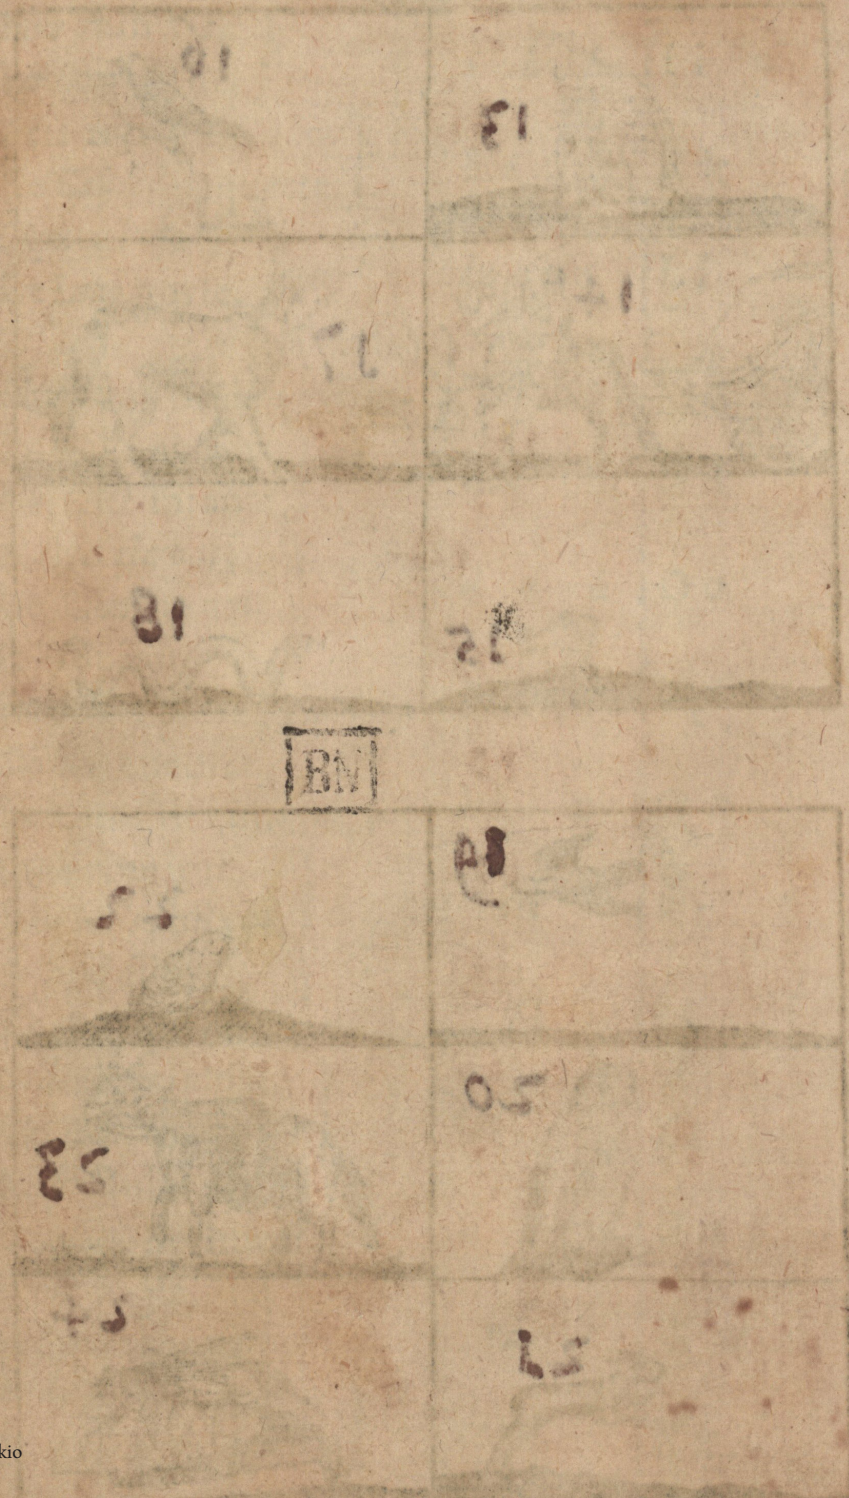 16
13
17
14
18
15
BN
22
19
20
23
24
21
kio